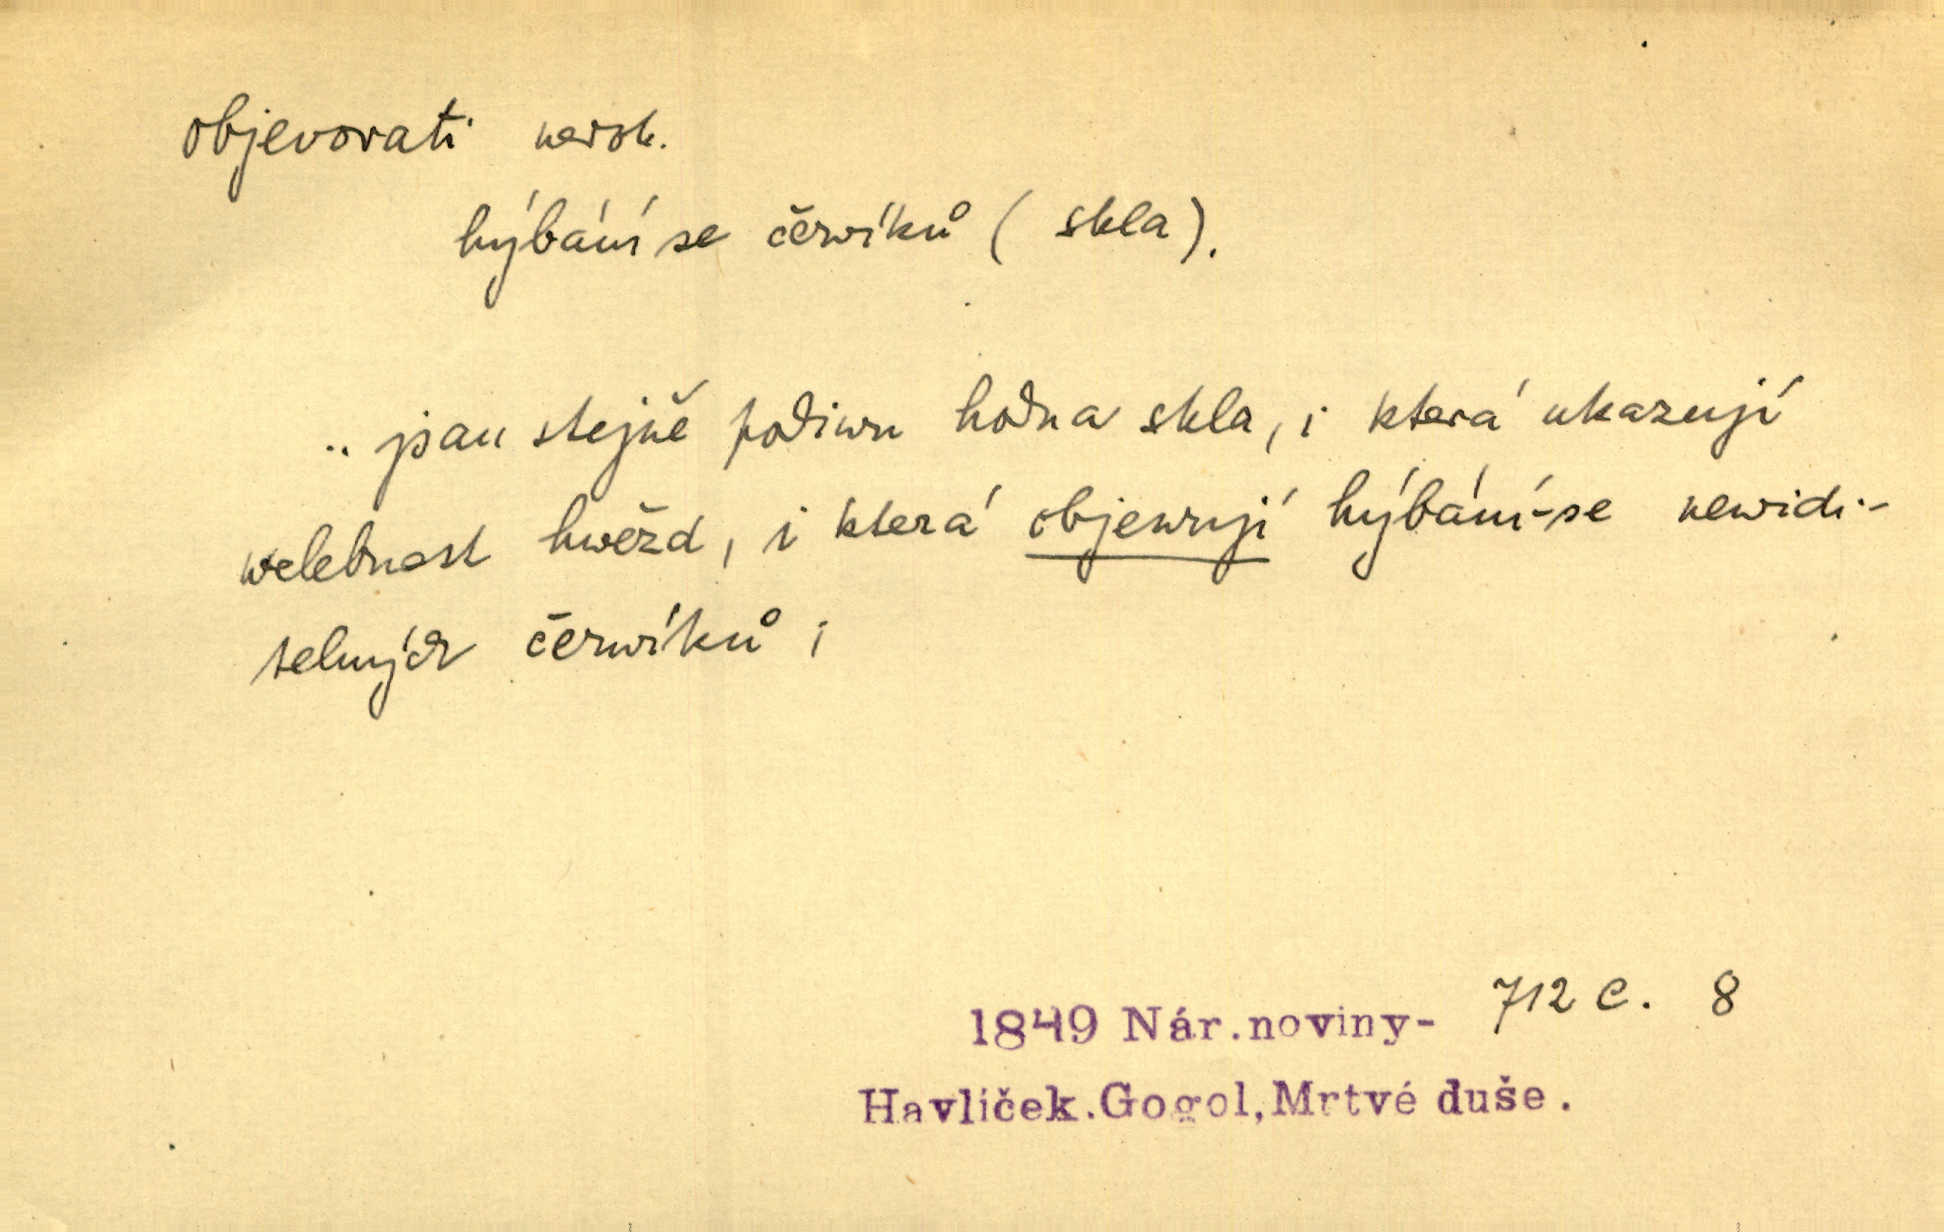 objevovati nedok.
hýbání se čerwíků ( skla ).
.. jsau stejně podiwu hodna skla, i která ukazují
welebnost hwězd, i která objewují hýbání-se newidi-
telných čerwíků ;
712 C. 8
1849 Nár.noviny-
Havlíček.Gogol,Mrtvé duše.